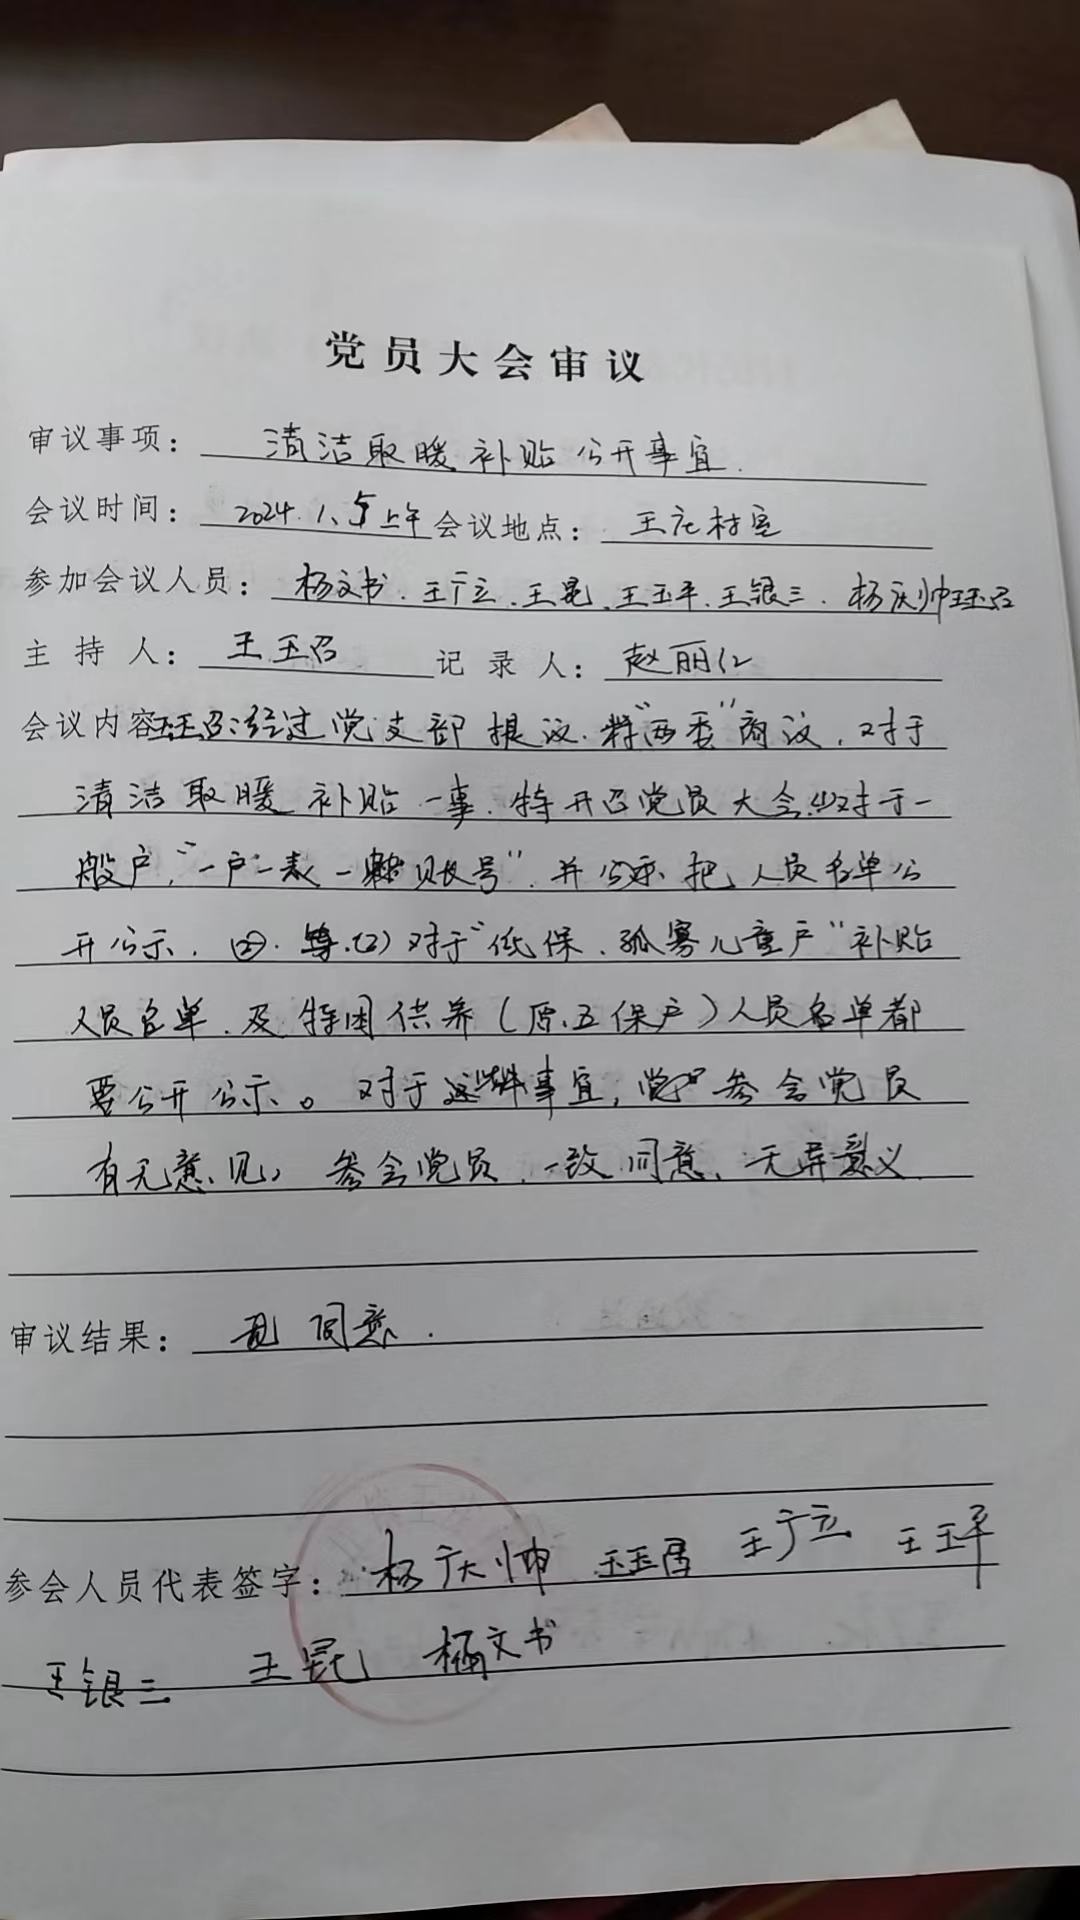 党员大会审议
审议事项：清洁取暖补贴公开事宜.
会议时间：2024.1.5上午 会议地点：王庄村室
参加会议人员：杨文书.王广立.王昆.王玉平.王银三.杨庆帅王玉召
主持人：王玉召 记录人：赵丽仁
会议内容王玉召:经过党支部提议."两委"商议,对于
清洁取暖补贴一事.特开召党员大会.(1)对于一
般户,"一户一表一账号".并公示.把人员名单公
开公示.(2)对于"低保.孤寡儿童户"补贴
人员名单.及特困供养(原.五保户)人员名单都
要公开公示。对于这些事宜,参会党员
有无意见,参会党员.一致同意.无异义
审议结果：同意.
参会人员代表签字：杨庆帅 王玉召 王广立 王玉平
王银三 王昆 杨文书